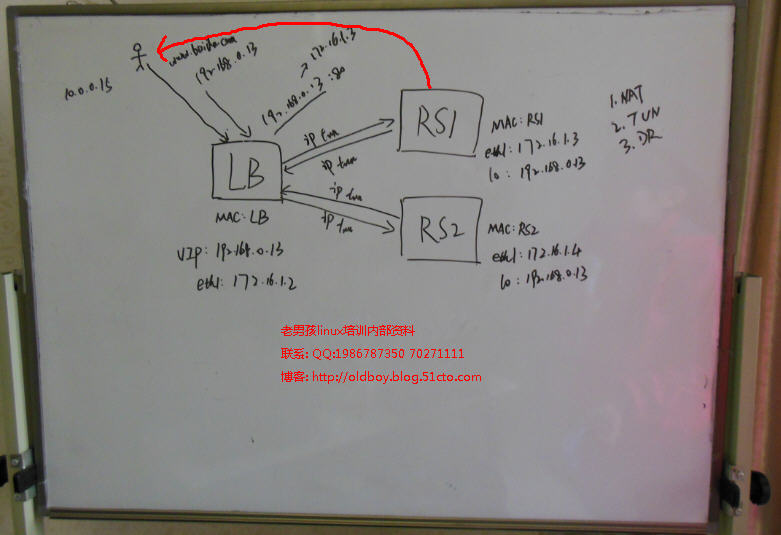 www.baidu.com
192.168.0.13
10.0.0.15
172.16.1.3
192.168.0.13:80
ip tun
ip tun
ip tun
ip tun
LB
MAC: LB
VIP: 192.168.0.13
eth1: 172.16.1.2
RS1
MAC: RS1
eth1: 172.16.1.3
lo: 192.168.0.13
RS2
MAC: RS2
eth1: 172.16.1.4
lo: 192.168.0.13
1. NAT
2. TUN
3. DR
老男孩linux培训内部资料
联系: QQ:1986787350 70271111
博客: http://oldboy.blog.51cto.com